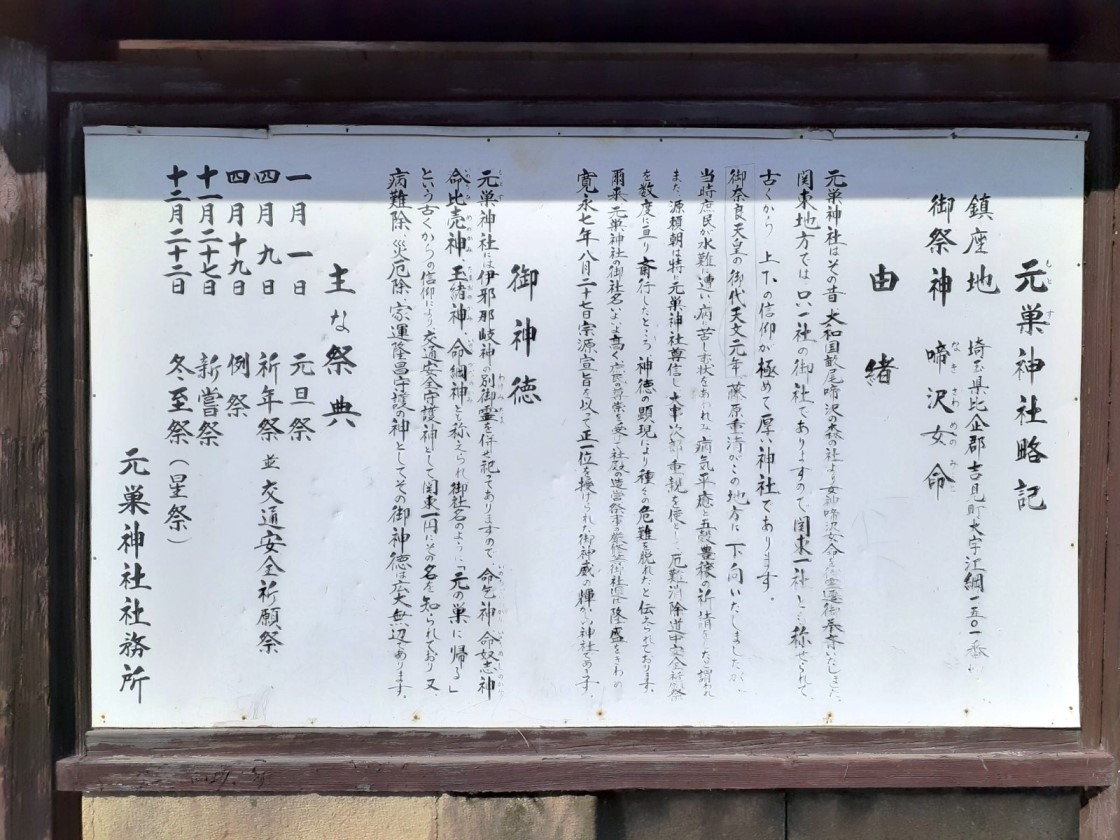 元巣神社略記
鎮座地 埼玉県比企郡吉見町大字江綱一五〇一番
御祭神 啼沢女命
由緒
元巣神社はその昔大和国畝尾啼沢の森の社より女神啼沢女命を御奉斎いたしました。
関東地方では只一社の御社でありますので関東一社とも称せられて、
古くから上下の信仰が極めて厚い神社であります。
御奈良天皇の御代天文元年、藤原重清がこの地方に下向いたしましたが、
当時庶民が水難に遭い病苦し病気平癒と五穀豊穣の祈請を
また、源頼朝は特に元巣神社尊信し大事次郎重親を使とし厄難消除道中安全祈祭
を数度に亘り斎行したところ神徳の顕現により種々の危難を脱れたと伝えられております。
爾来元巣神社の御社名いよいよ高く社殿の造営祭事の厳修社頭は隆盛をきわめ
寛永七年八月二十七日宗源宣旨を以って正一位を授けられた御神威の輝かしい神社であります。
御神徳
元巣神社には伊邪那岐神の別御霊を併せ祀ってありますので、命乞神、命奴志神
命比売神、玉緒神、命綱神と称えられ御社名のように「元の巣に帰る」
という古くからの信仰により交通安全守護神として関東一円にその名を知られており又、
病難除、災厄除、家運隆昌守護の神としてその御神徳は広大無辺であります。
主な祭典
一月一日 元旦祭
四月九日 祈年祭並交通安全祈願祭
四月十九日 例祭
十一月二十七日 新嘗祭
十二月二十二日 冬至祭（星祭）
元巣神社社務所